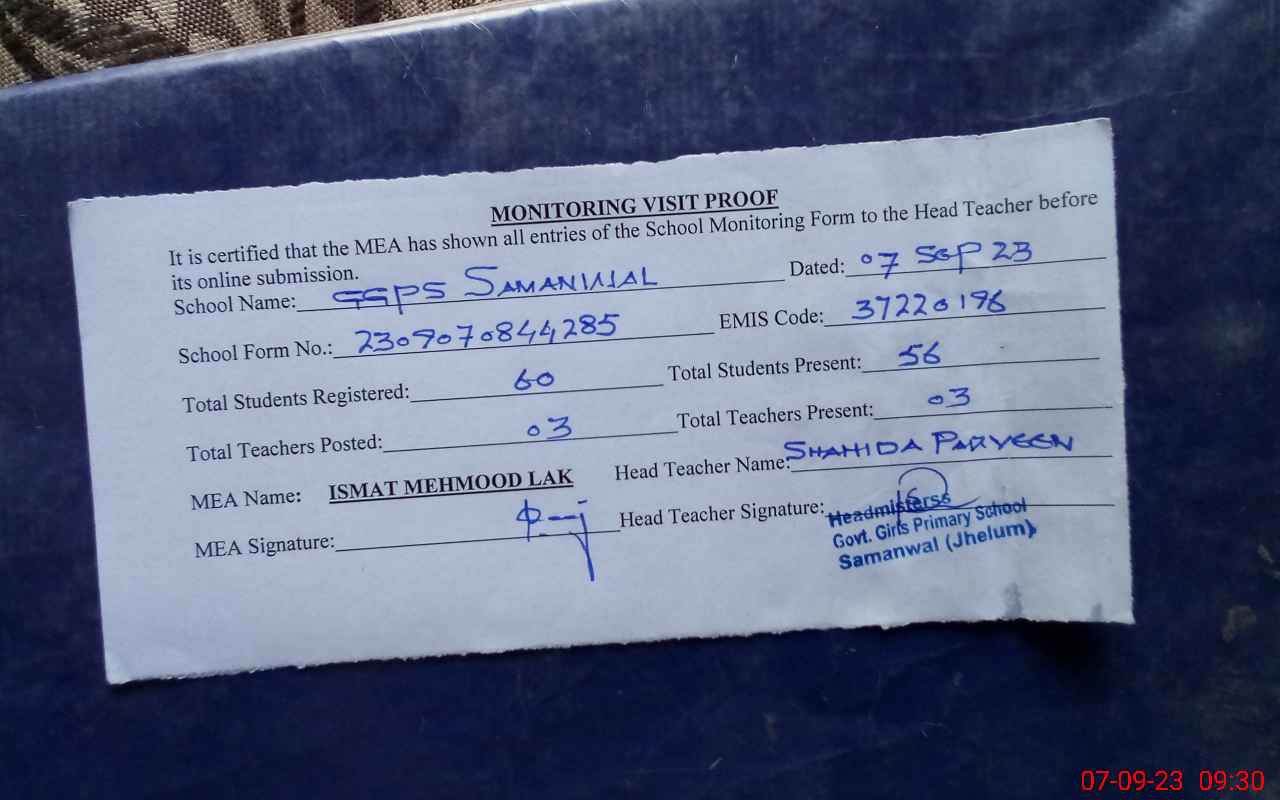 MONITORING VISIT PROOF
It is certified that the MEA has shown all entries of the School Monitoring Form to the Head Teacher before
its online submission.
School Name: GGPS SAMANWAL Dated: 07 SEP 23
School Form No.: 2309070844285 EMIS Code: 37220196
Total Students Registered: 60 Total Students Present: 56
Total Teachers Posted: 03 Total Teachers Present: 03
MEA Name: ISMAT MEHMOOD LAK Head Teacher Name: SHAHIDA PARVEEN
MEA Signature: Head Teacher Signature:
Headmisterss
Govt. Girls Primary School
Samanwal (Jhelum)
07-09-23 09:30